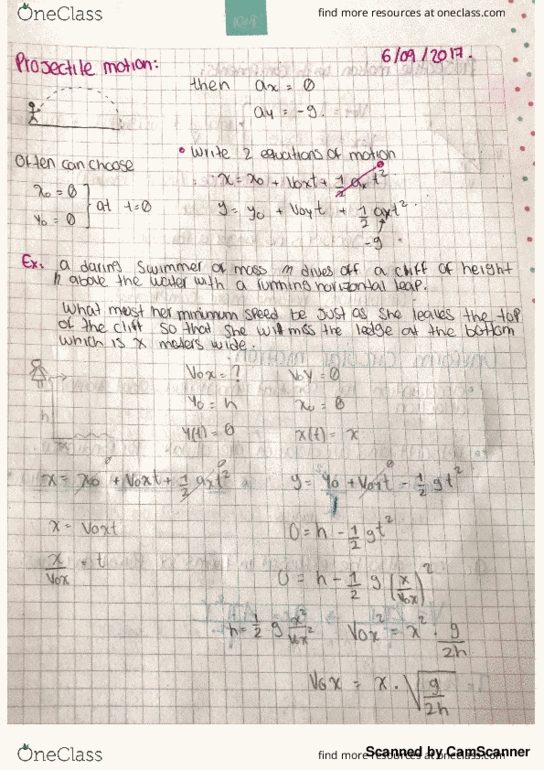 OneClass
find more resources at oneclass.com
6/09/2017.
Projectile motion:
then ax = 0
ay = -g.
• Write 2 equations of motion
Often can choose
x0 = 0
y0 = 0
at t=0
x = x0 + V0xt + 1/2 axt²
y = y0 + V0yt + 1/2 axt²
-g.
Ex. a daring swimmer of mass m dives off a cliff of height
h above the water with a running horizontal leap.
What must her minimum speed be just as she leaves the top
of the cliff so that she will miss the ledge at the bottom
which is x meters wide.
V0x = ? V0y = 0
y0 = h x0 = 0
y(t) = 0 x(t) = x
h
x = x0 + V0xt + 1/2 axt² y = y0 + V0yt - 1/2 gt²
0 0 0
x = V0xt 0 = h - 1/2 gt²
x/V0x = t 0 = h - 1/2 g (x/V0x)²
h = 1/2 g x²/V0x² V0x² = x² · g/2h
V0x = x · √g/2h
OneClass
find more resources at oneclass.com
Scanned by CamScanner